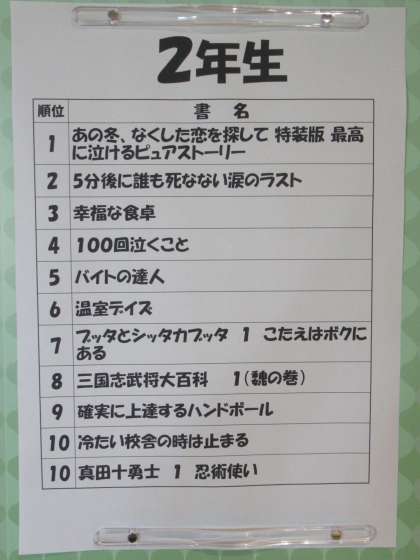 2年生
順位 書 名
1 あの冬、なくした恋を探して 特装版 最高
に泣けるピュアストーリー
2 5分後に誰も死なない涙のラスト
3 幸福な食卓
4 100回泣くこと
5 バイトの達人
6 温室デイズ
7 ブッタとシッタカブッタ 1 こたえはボクに
ある
8 三国志武将大百科 1(魏の巻)
9 確実に上達するハンドボール
10 冷たい校舎の時は止まる
10 真田十勇士 1 忍術使い